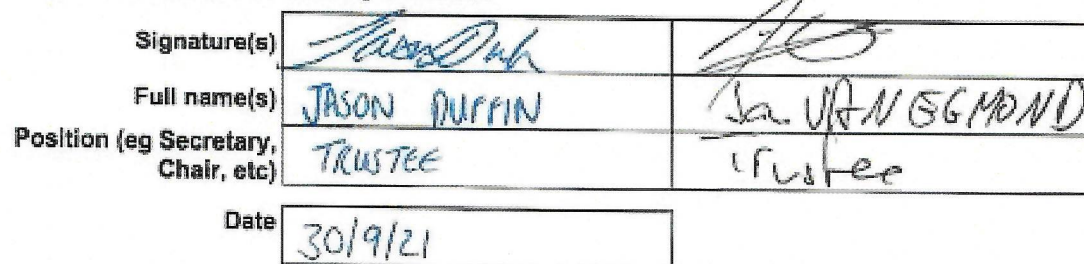 Signature(s)
Full name(s) JASON DUFFIN Jan VAN EGMOND
Position (eg Secretary,
Chair, etc) TRUSTEE Trustee
Date 30/9/21